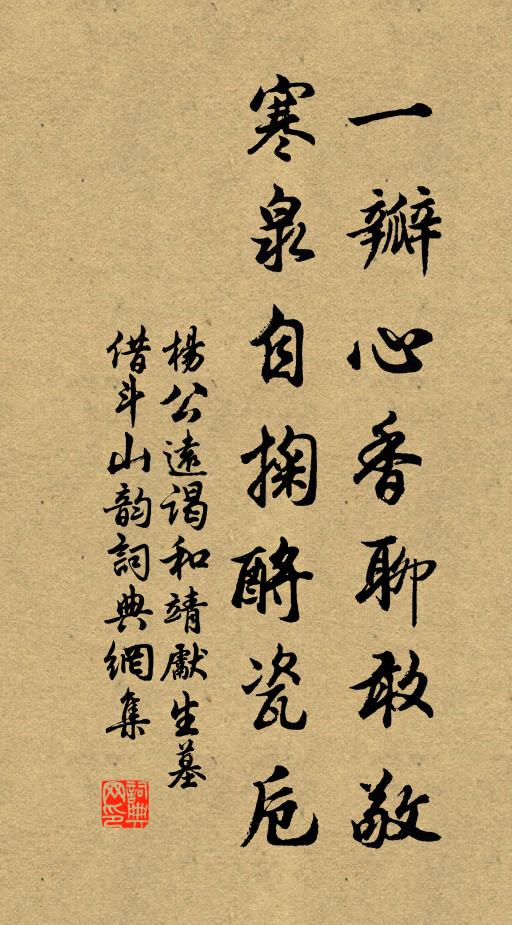 一瓣心香聊敢敬
寒泉自掬酹瓷卮
楊公遠謁和靖獻生墓
借斗山韵詞典網集
詞典网印